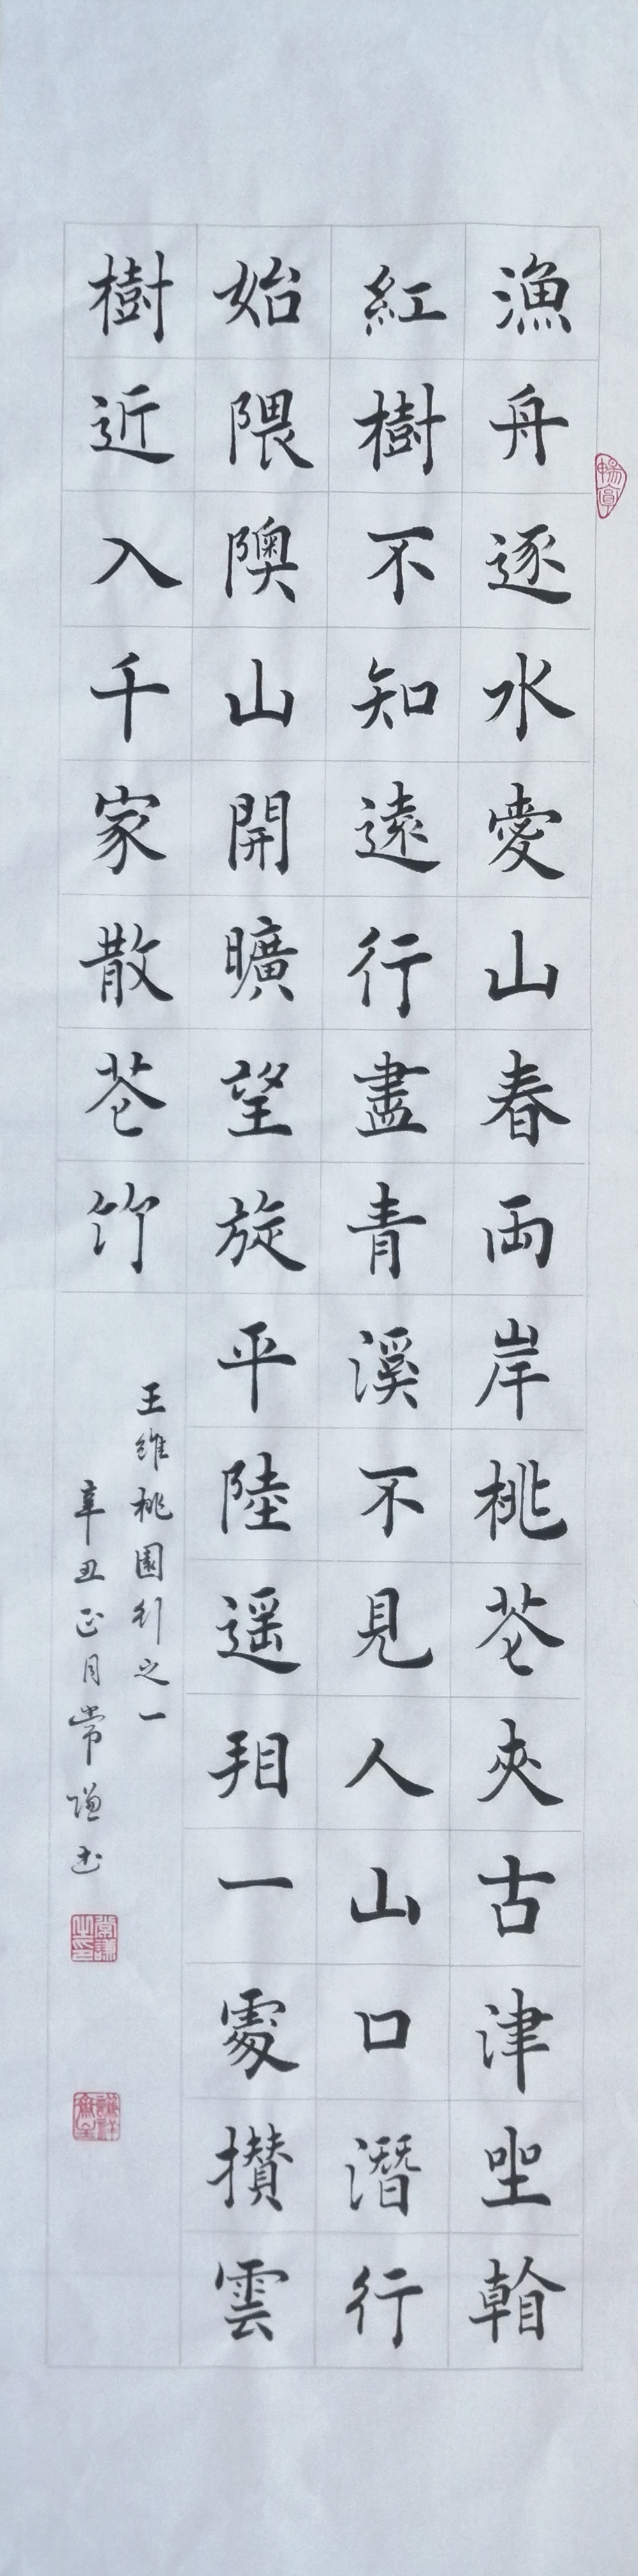 漁舟逐水愛山春両岸桃花夾古津坐看
紅樹不知遠行盡青溪不見人山口潛行
始隈隩山開曠望旋平陸遥看一處攢雲
樹近入千家散花竹
王維桃園行之一
辛丑正月常謙书
常謙之印